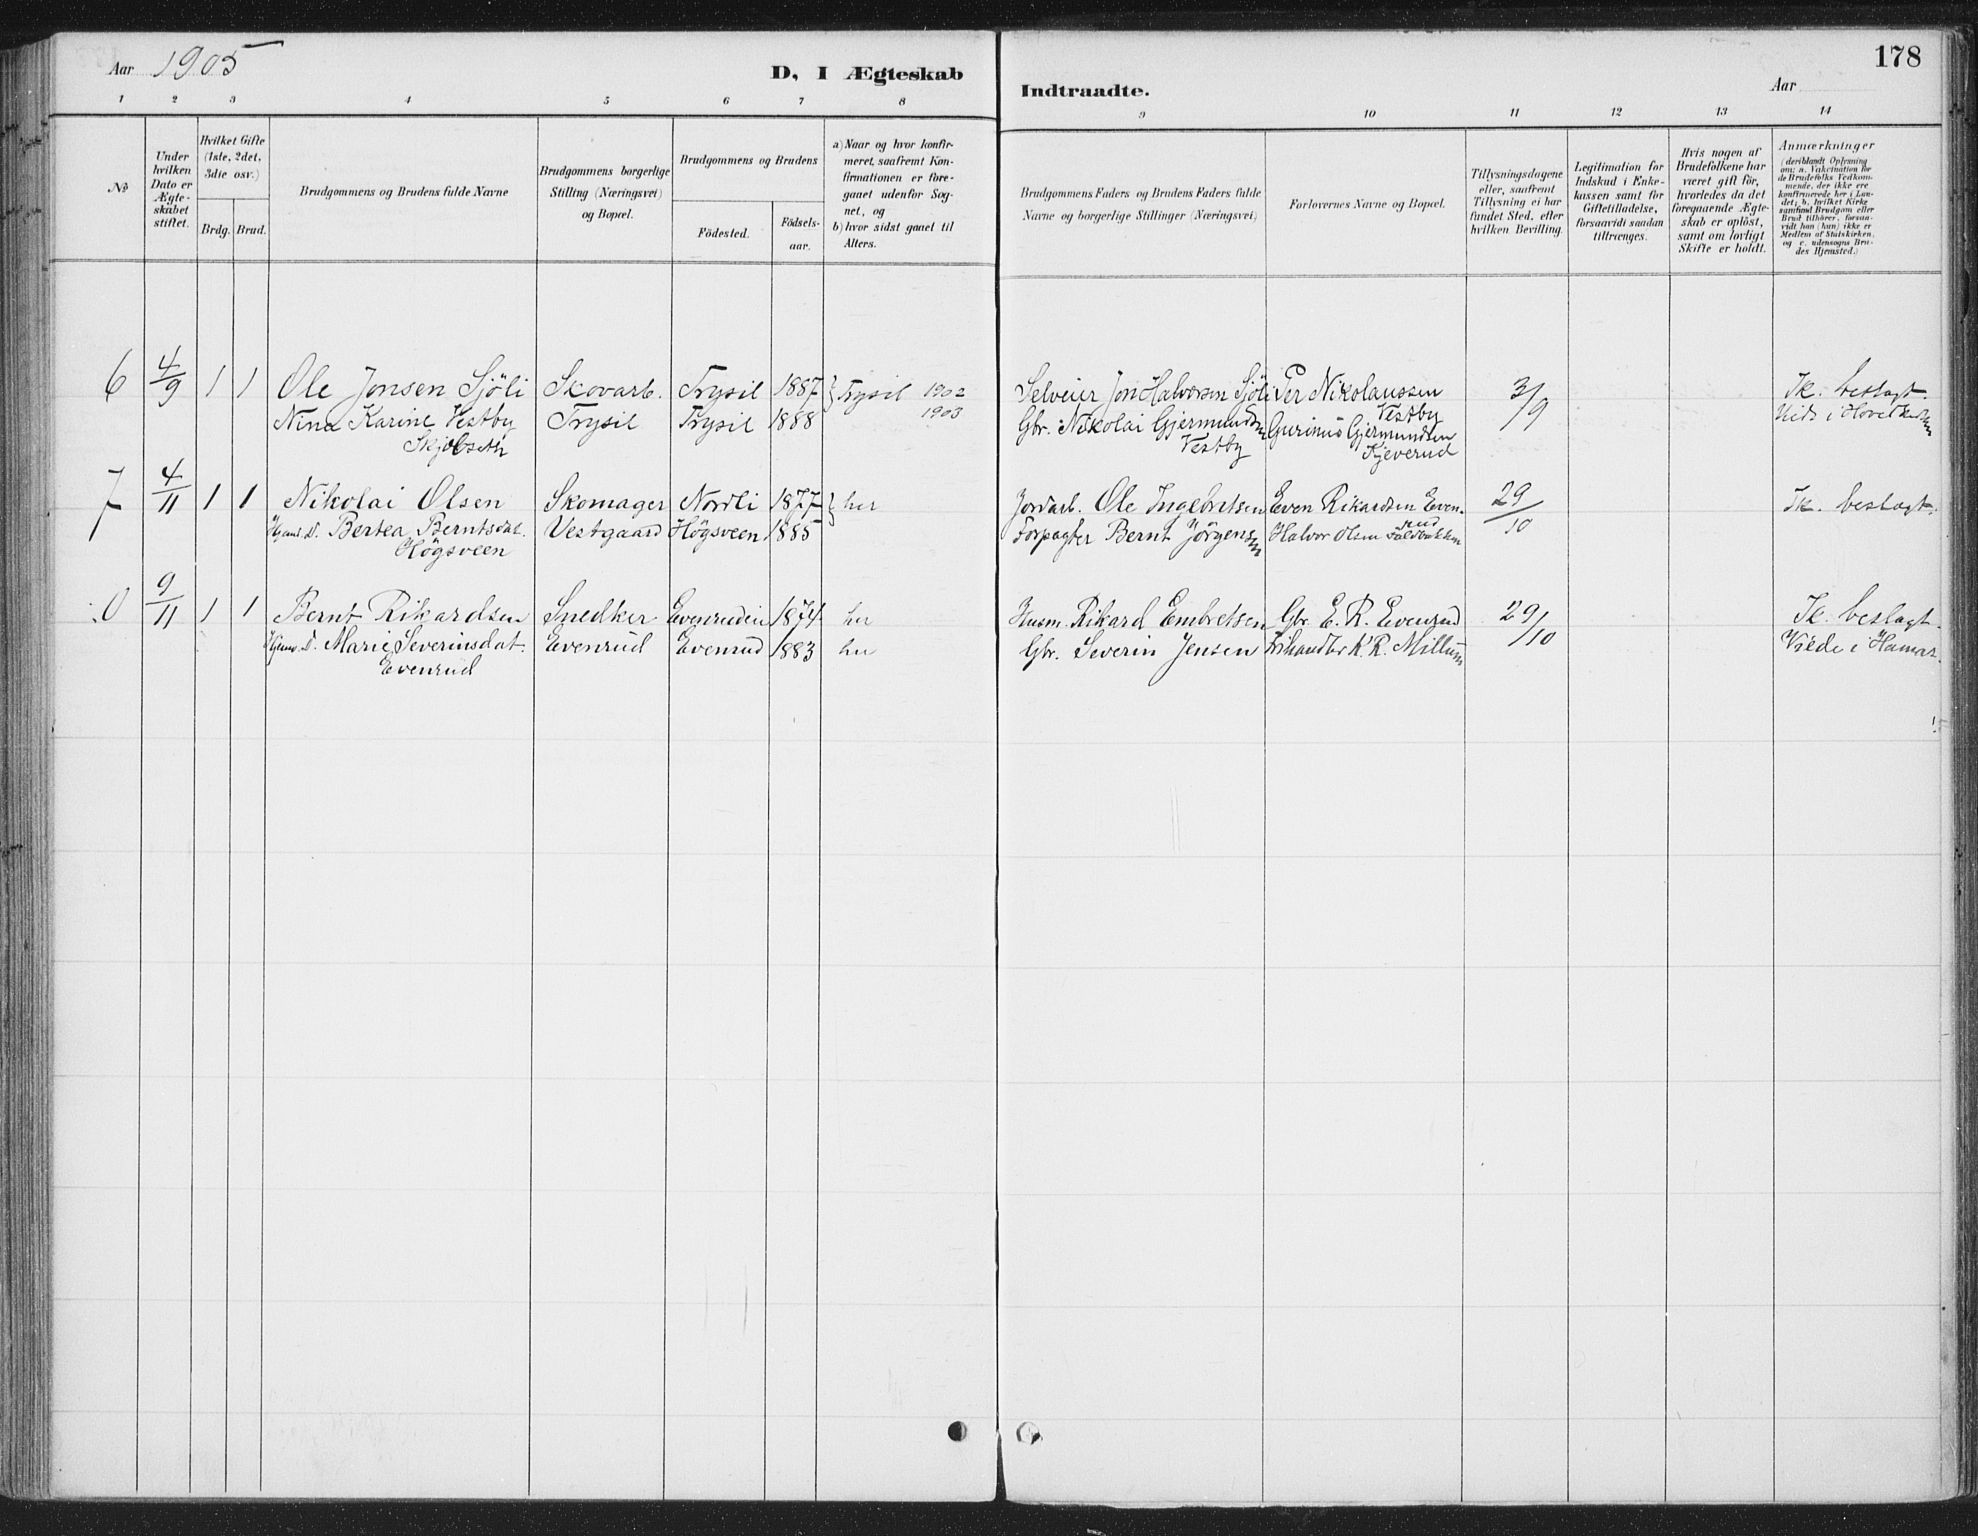 Aar 1905
D, I Ægteskab
Indtraadte.
Aar
178
1 2 3 4 5 6 7 8 9 10 11 12 13 14
No
Under hvilken Dato er Ægteskabet stiftet.
Hvilket Gifte (1ste, 2det, 3die osv.)
Brdg. Brud.
Brudgommens og Brudens fulde Navne
Brudgommens borgerlige Stilling (Næringsvei) og Bopæl.
Brudgommens og Brudens
Födested.
Födselsaar.
a) Naar og hvor konfirmeret, saafremt Konfirmationen er foregaaet udenfor Sognet, og
b) hvor sidst gaaet til Alters.
Brudgommens Faders og Brudens Faders fulde Navne og borgerlige Stillinger (Næringsvei)
Forlovernes Navne og Bopæl.
Tillysningsdagene eller, saafremt Tillysning ei har fundet Sted, efter hvilken Bevilling.
Legitimation for Indskud i Enkekassen samt for Giftetilladelse, forsaavidt saadan tiltrænges.
Hvis nogen af Brudefolkene har været gift för, hvorledes da det foregaaende Ægteskab er oplöst, samt om lovligt Skifte er holdt.
Anmærkninger (deriblandt Oplysning om: a. Vakcination for de Brudefolks Vedkommende, der ikke ere konfirmerede her i Landet; b. hvilket Kirkesamfund Brudgom eller Brud tilhörer, forsaavidt han (hun) ikke er Medlem af Statskirken, og c. udensogns Brudes Hjemsted.)
6 4/9 1 1 Ole Jonsen Sjöli Skovarb. Trysil 1887 Trysil 1902 Selveier Jon Halvorsen Sjöli Per Nikolaussen Vestby 3/9 Ik. beslagt.
Nina Karine Vestby Skjöbseth Trysil Trysil 1888 1903 Gbr. Nikolai Gjermundsen Vestby Gurinius Gjermundsen Kjeverud Vids i
7 4/11 1 1 Nikolai Olsen Skomager Nordli 1877 her Jordarb. Ole Ingebretsen Even Rikardsen Evenrud 29/10 Ik. beslagt.
Bertea Berntsdat. Högsveen Vestgaard Högsveen 1885 Forpagter Bernt Jörgensen Halvor Olsen
9/11 1 1 Bernt Rikardsen Snedker Evenruden 1874 her Husm. Rikard Embretsen Gbr. E. R. Evenrud 29/10 Ik. beslagt.
Marie Severinsdat. Evenrud Evenrud Evenrud 1883 her Gbr. Severin Jensen K. R. Millum Viede i Hamar.